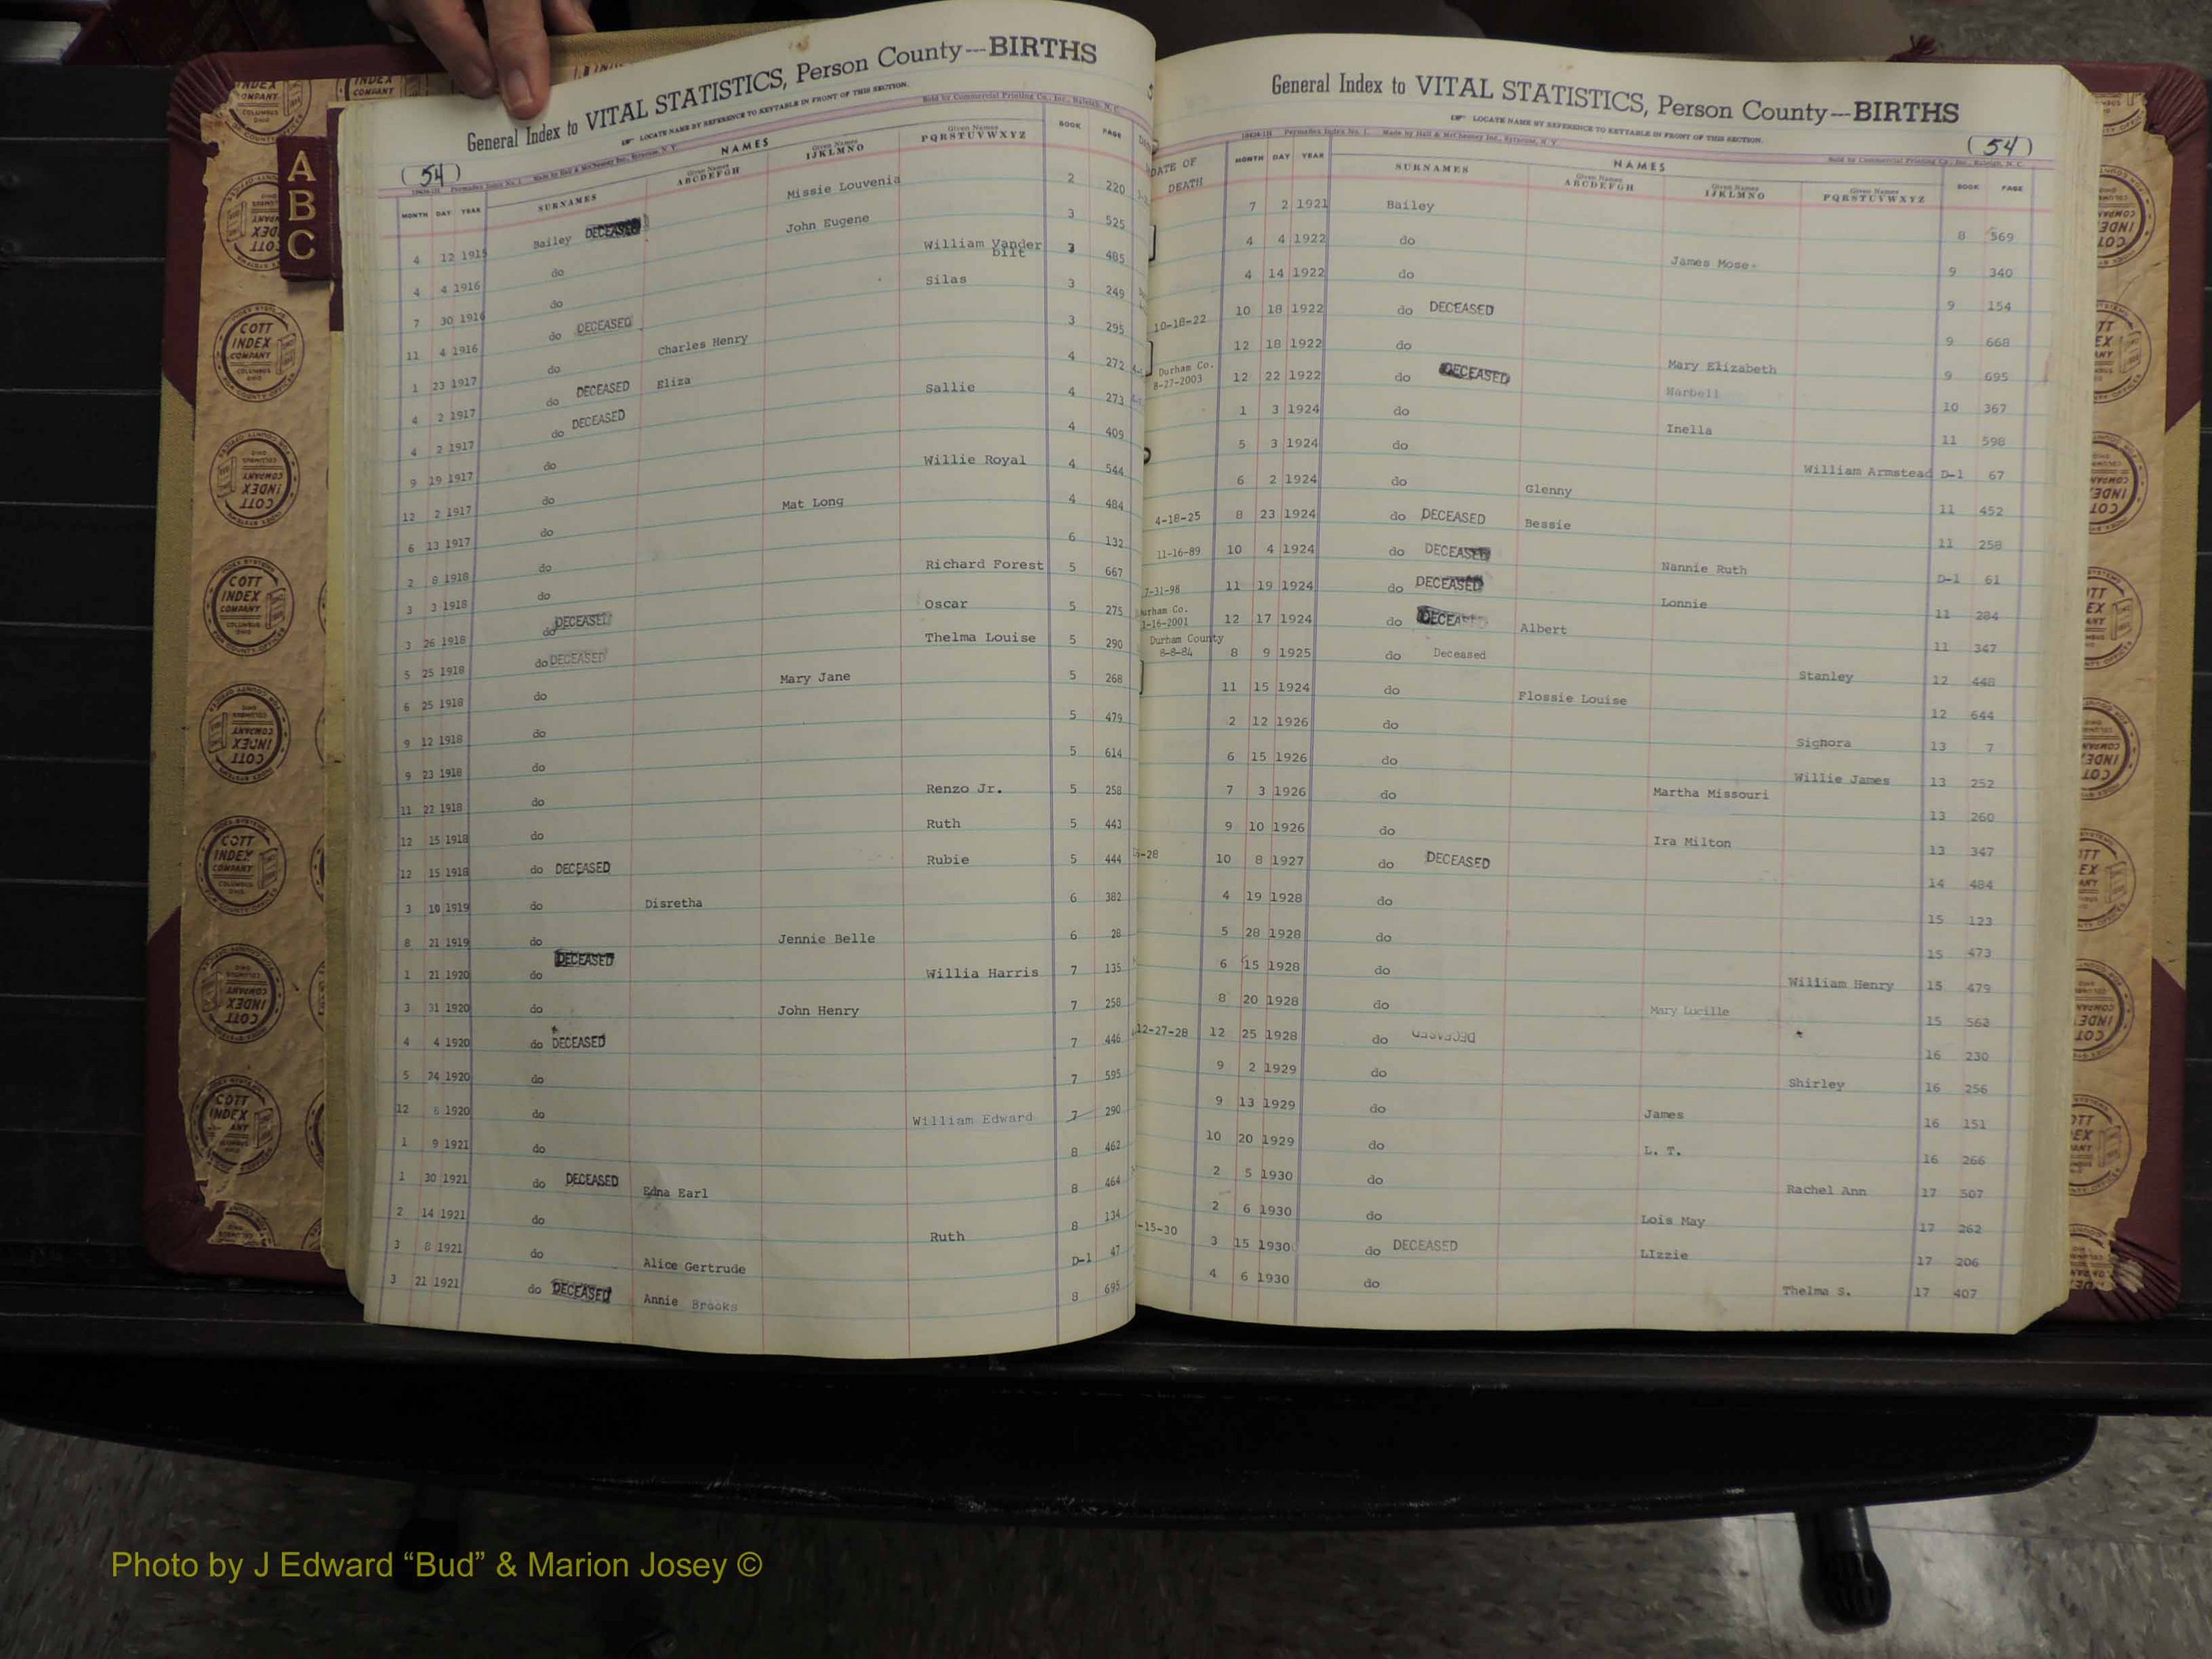 General Index to VITAL STATISTICS, Person County---BIRTHS
LOCATE NAME BY REFERENCE TO KEYTABLE IN FRONT OF THIS SECTION.
(54)
Made by Hall & McChesney Inc., Syracuse, N. Y. Sold by Commercial Printing Co., Inc., Raleigh, N. C.
NAMES
MONTH DAY YEAR SURNAMES Given Names ABCDEFGH Given Names IJKLMNO Given Names PQRSTUVWXYZ BOOK PAGE
4 12 1915 Bailey DECEASED Missie Louvenia 2 220
4 4 1916 do John Eugene 3 525
7 30 1916 do William Vander bilt 3 485
11 4 1916 do DECEASED Silas 3 249
1 23 1917 do Charles Henry 3 295
4 2 1917 do DECEASED Eliza 4 272
4 2 1917 do DECEASED Sallie 4 273
9 19 1917 do 4 409
12 2 1917 do Willie Royal 4 544
6 13 1917 do Mat Long 4 484
2 8 1918 do 6 132
3 3 1918 do Richard Forest 5 667
3 26 1918 do DECEASED Oscar 5 275
5 25 1918 do DECEASED Thelma Louise 5 290
6 25 1918 do Mary Jane 5 268
9 12 1918 do 5 479
9 23 1918 do 5 614
11 22 1918 do Renzo Jr. 5 258
12 15 1918 do Ruth 5 443
12 15 1918 do DECEASED Rubie 5 444
3 10 1919 do Disretha 6 382
8 21 1919 do Jennie Belle 6 28
1 21 1920 do DECEASED Willia Harris 7 135
3 31 1920 do John Henry 7 258
4 4 1920 do DECEASED 7 446
5 24 1920 do 7 595
12 6 1920 do William Edward 7 290
1 9 1921 do 8 462
1 30 1921 do DECEASED Edna Earl 8 464
2 14 1921 do Ruth 8 134
3 8 1921 do Alice Gertrude D-1 47
3 21 1921 do DECEASED Annie Brooks 8 695
General Index to VITAL STATISTICS, Person County---BIRTHS
LOCATE NAME BY REFERENCE TO KEYTABLE IN FRONT OF THIS SECTION.
(54)
Made by Hall & McChesney Inc., Syracuse, N. Y. Sold by Commercial Printing Co., Inc., Raleigh, N. C.
NAMES
DATE OF DEATH MONTH DAY YEAR SURNAMES Given Names ABCDEFGH Given Names IJKLMNO Given Names PQRSTUVWXYZ BOOK PAGE
7 2 1921 Bailey 8 569
4 4 1922 do James Mose 9 340
4 14 1922 do 9 154
10-18-22 10 18 1922 do DECEASED 9 668
12 18 1922 do Mary Elizabeth 9 695
Durham Co. 8-27-2003 12 22 1922 do DECEASED Marbell 10 367
1 3 1924 do Inella 11 598
5 3 1924 do William Armstead D-1 67
6 2 1924 do Glenny 11 452
4-18-25 8 23 1924 do DECEASED Bessie 11 258
11-16-89 10 4 1924 do DECEASED Nannie Ruth D-1 61
7-31-98 11 19 1924 do DECEASED Lonnie 11 284
Durham Co. 1-16-2001 12 17 1924 do DECEASED Albert 11 347
Durham County 8-8-84 8 9 1925 do Deceased Stanley 12 448
11 15 1924 do Flossie Louise 12 644
2 12 1926 do Signora 13 7
6 15 1926 do Willie James 13 252
7 3 1926 do Martha Missouri 13 260
9 10 1926 do Ira Milton 13 347
10 8 1927 do DECEASED 14 484
4 19 1928 do 15 123
5 28 1928 do 15 473
6 15 1928 do William Henry 15 479
8 20 1928 do Mary Lucille 15 563
12-27-28 12 25 1928 do DECEASED 16 230
9 2 1929 do Shirley 16 256
9 13 1929 do James 16 151
10 20 1929 do L. T. 16 266
2 5 1930 do Rachel Ann 17 507
2 6 1930 do Lois May 17 262
-15-30 3 15 1930 do DECEASED LIzzie 17 206
4 6 1930 do Thelma S. 17 407
A
B
C
COTT INDEX COMPANY COLUMBUS OHIO
Photo by J Edward “Bud” & Marion Josey ©